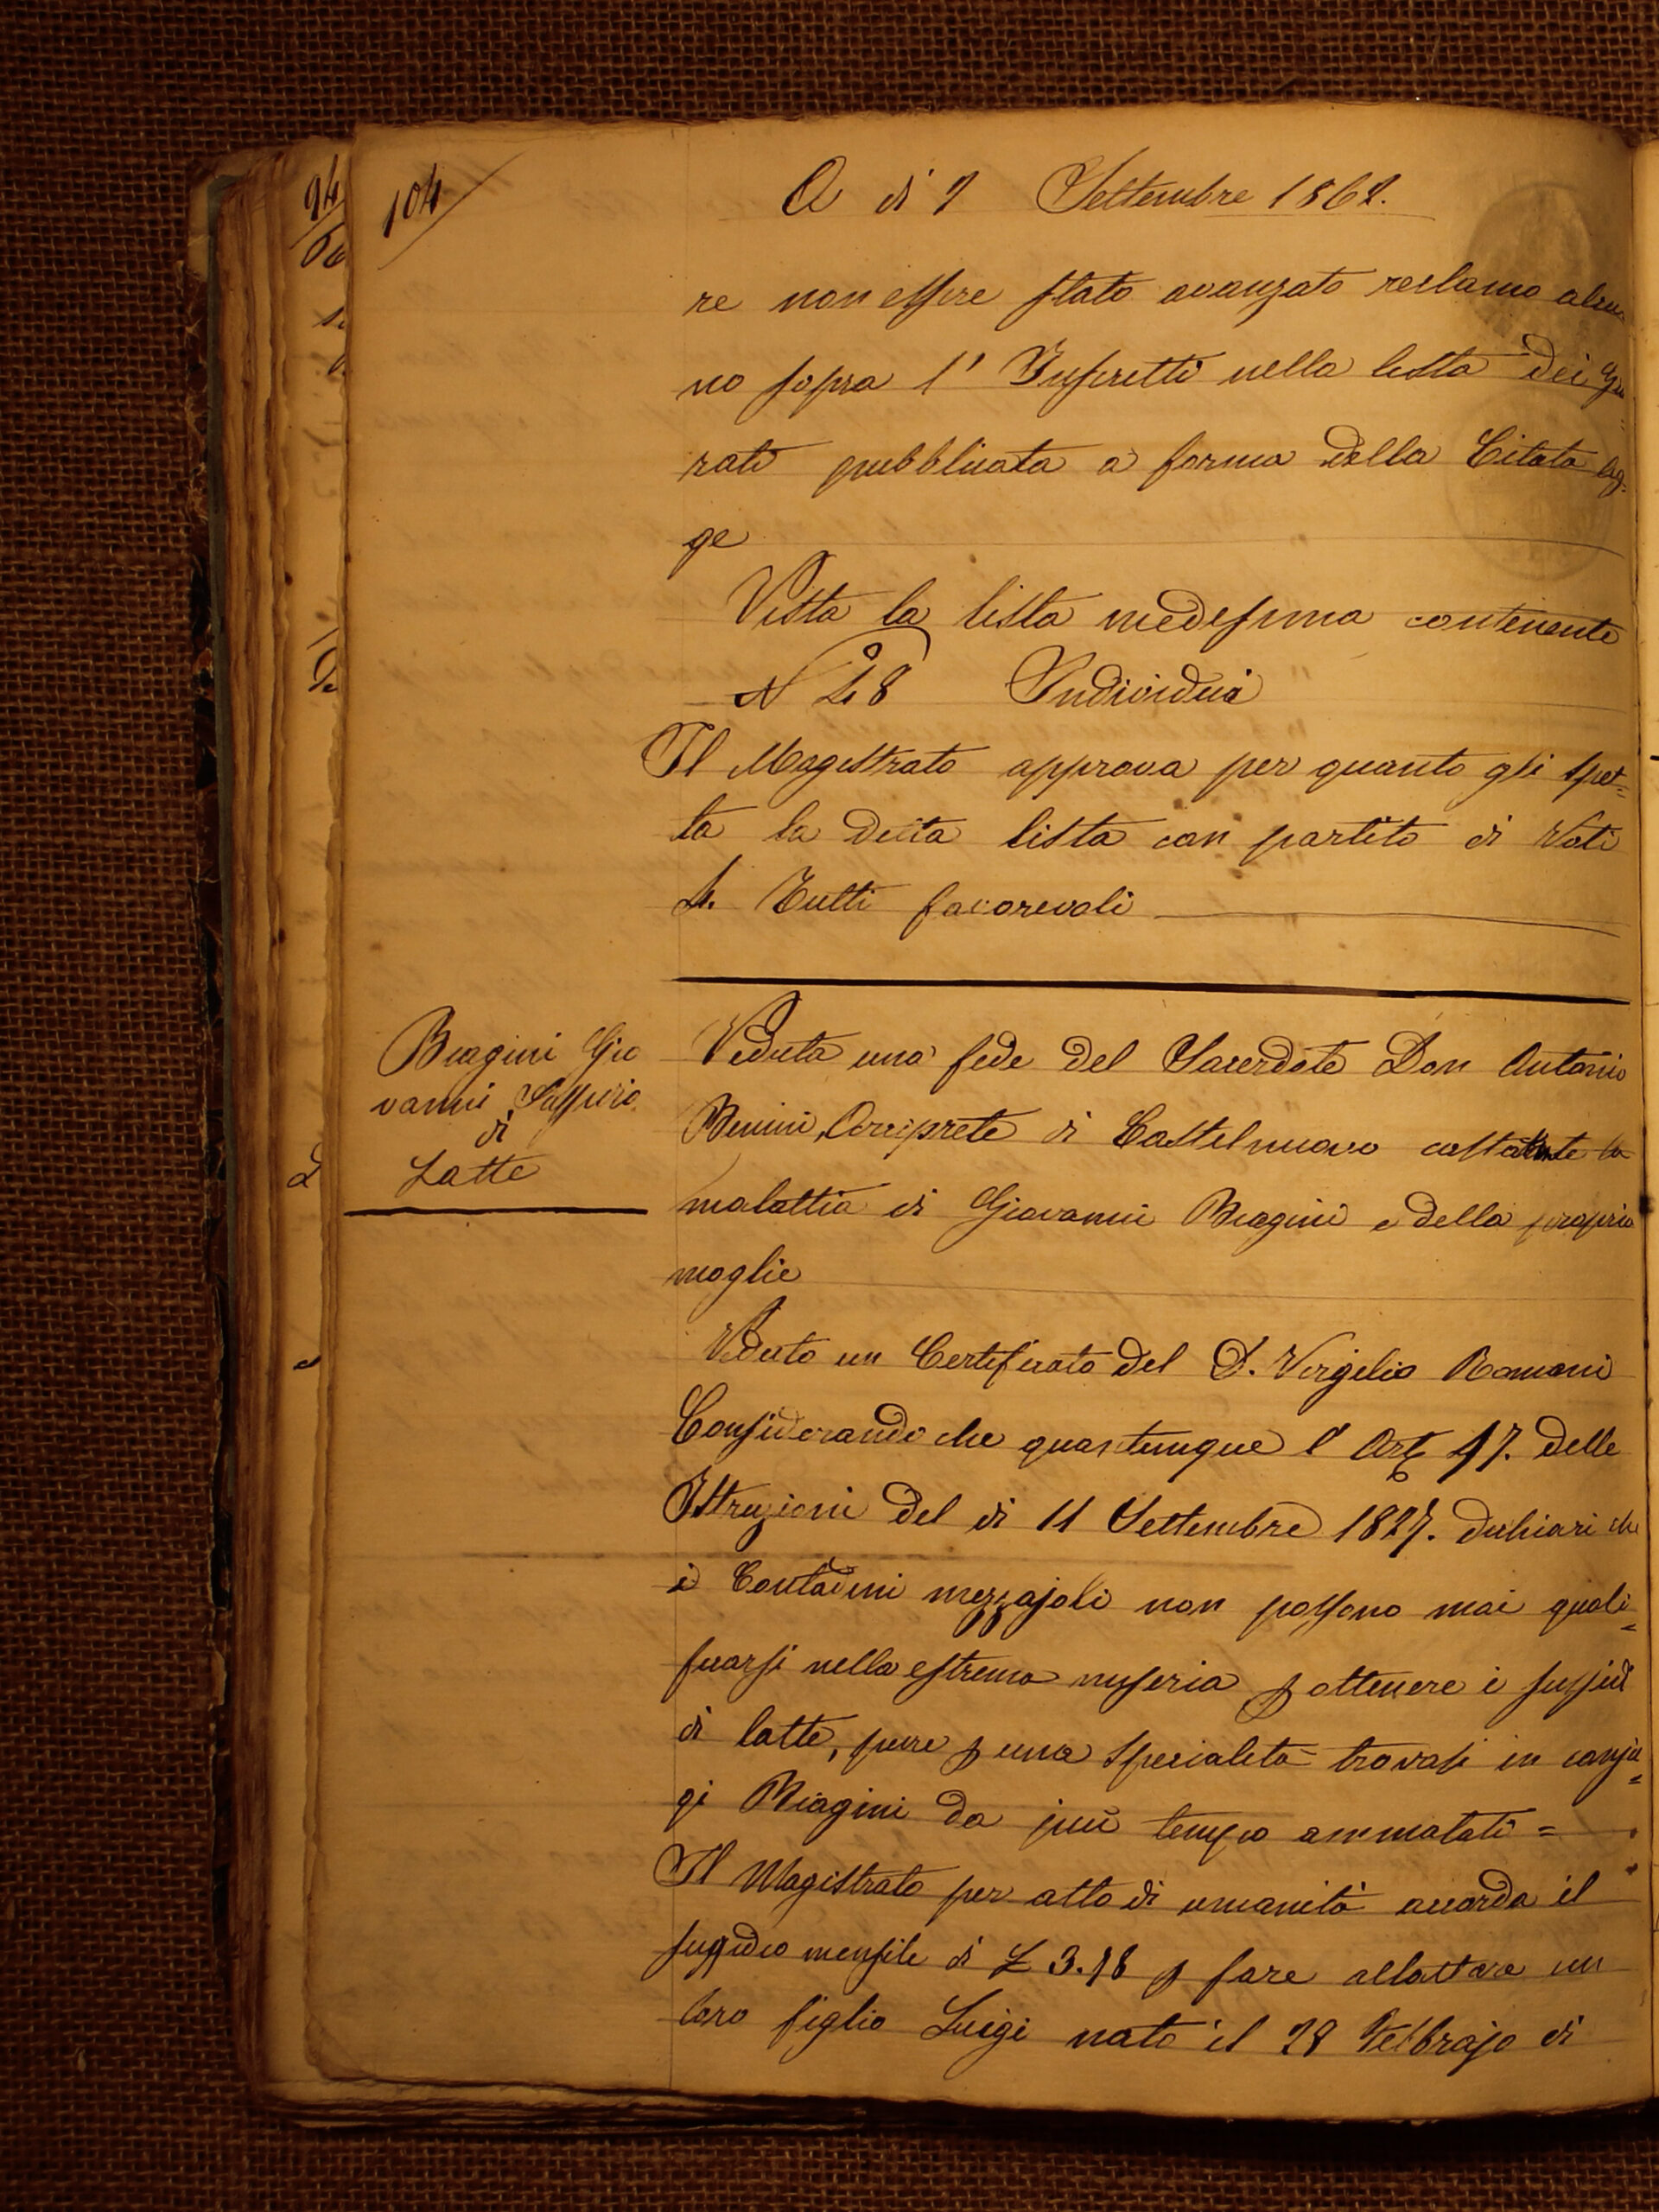 94
104
A di 2 Settembre 1862.
re non essere stato avanzato reclamo alcu
no sopra l' Inscritti nella lista dei Giu
rati pubblicata a forma della Citata leg=
ge
Vista la lista medesima contenente
N° 28 Individui
Il Magistrato approva per quanto gli spet=
ta la detta lista con partito di Voti
4. Tutti favorevoli
Biagini Gio
vanni Sussidio
di
Latte
Veduta una fede del Sacerdote Don Antonio
Benini, Arciprete di Castelnuovo costatante la
malattia di Giovanni Biagini e della propria
moglie
Veduto un Certificato del D. Virgilio Romani
Considerando che quantunque l' Art 47. delle
Istruzioni del di 11 Settembre 1827. dichiari che
i Contadini mezzajoli non possono mai quali=
ficarsi nella estrema miseria p ottenere i sussidi
di latte, pure p una specialità trovasi in conju=
gi Biagini da più tempo ammalati =
Il Magistrato per atto di umanità accorda il
sussidio mensile di £ 3.18 p fare allattare un
loro figlio Luigi nato il 28 Febbrajo di